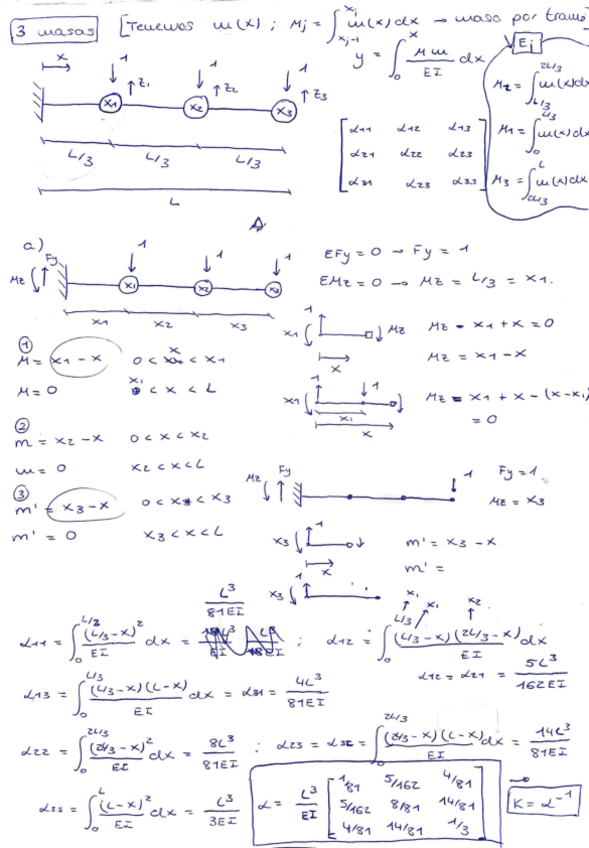 3 masas
[Tenemos m(x) ; Mj = ∫_{xj-1}^{xj} m(x) dx → masa por tramo
y = ∫_0^x Mm/EI dx
Ej
x
1 1 1
z1 z2 z3
x1 x2 x3
L/3 L/3 L/3
L
[α11 α12 α13
α21 α22 α23
α31 α23 α33]
M2 = ∫_{L/3}^{2L/3} m(x) dx
M1 = ∫_0^{L/3} m(x) dx
M3 = ∫_{2L/3}^{L} m(x) dx
a)
Fy
Mz
1 1 1
x1 x2 x3
x1 x2 x3
EFy = 0 → Fy = 1
EMz = 0 → Mz = L/3 = x1.
①
M = x1 - x 0 < x < x1
M = 0 x1 < x < L
x1 1 Mz
x
Mz - x1 + x = 0
Mz = x1 - x
x1 1 1
x1
x
Mz = x1 + x - (x - x1)
= 0
②
m = x2 - x 0 < x < x2
m = 0 x2 < x < L
③
m' = x3 - x 0 < x < x3
m' = 0 x3 < x < L
Mz Fy 1
Fy = 1
Mz = x3
x3 1
x
m' = x3 - x
m' =
x3 1
L³/81EI
α11 = ∫_0^{L/2} (L/3 - x)²/EI dx = ;
x1 x1 x2
α12 = ∫_0^{L/3} (L/3 - x)(2L/3 - x)/EI dx
α12 = α21 = 5L³/162EI
α13 = ∫_0^{L/3} (L/3 - x)(L - x)/EI dx = α31 = 4L³/81EI
α22 = ∫_0^{2L/3} (2L/3 - x)²/EI dx = 8L³/81EI ; α23 = α32 = ∫_0^{2L/3} (2/3 - x)(L - x)/EI dx = 14L³/81EI
α33 = ∫_0^L (L - x)²/EI dx = L³/3EI
α = L³/EI [1/81 5/162 4/81
5/162 8/81 14/81
4/81 14/81 1/3]
K = α⁻¹